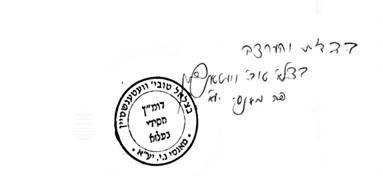 בברכה והערצה
בצלאל טובי' וועטענשטיין
פה מאנסי יע"א
בצלאל טובי' וועטענשטיין
דומ"ץ
חסידי
בעלזא
מאנסי נ.י. יע"א